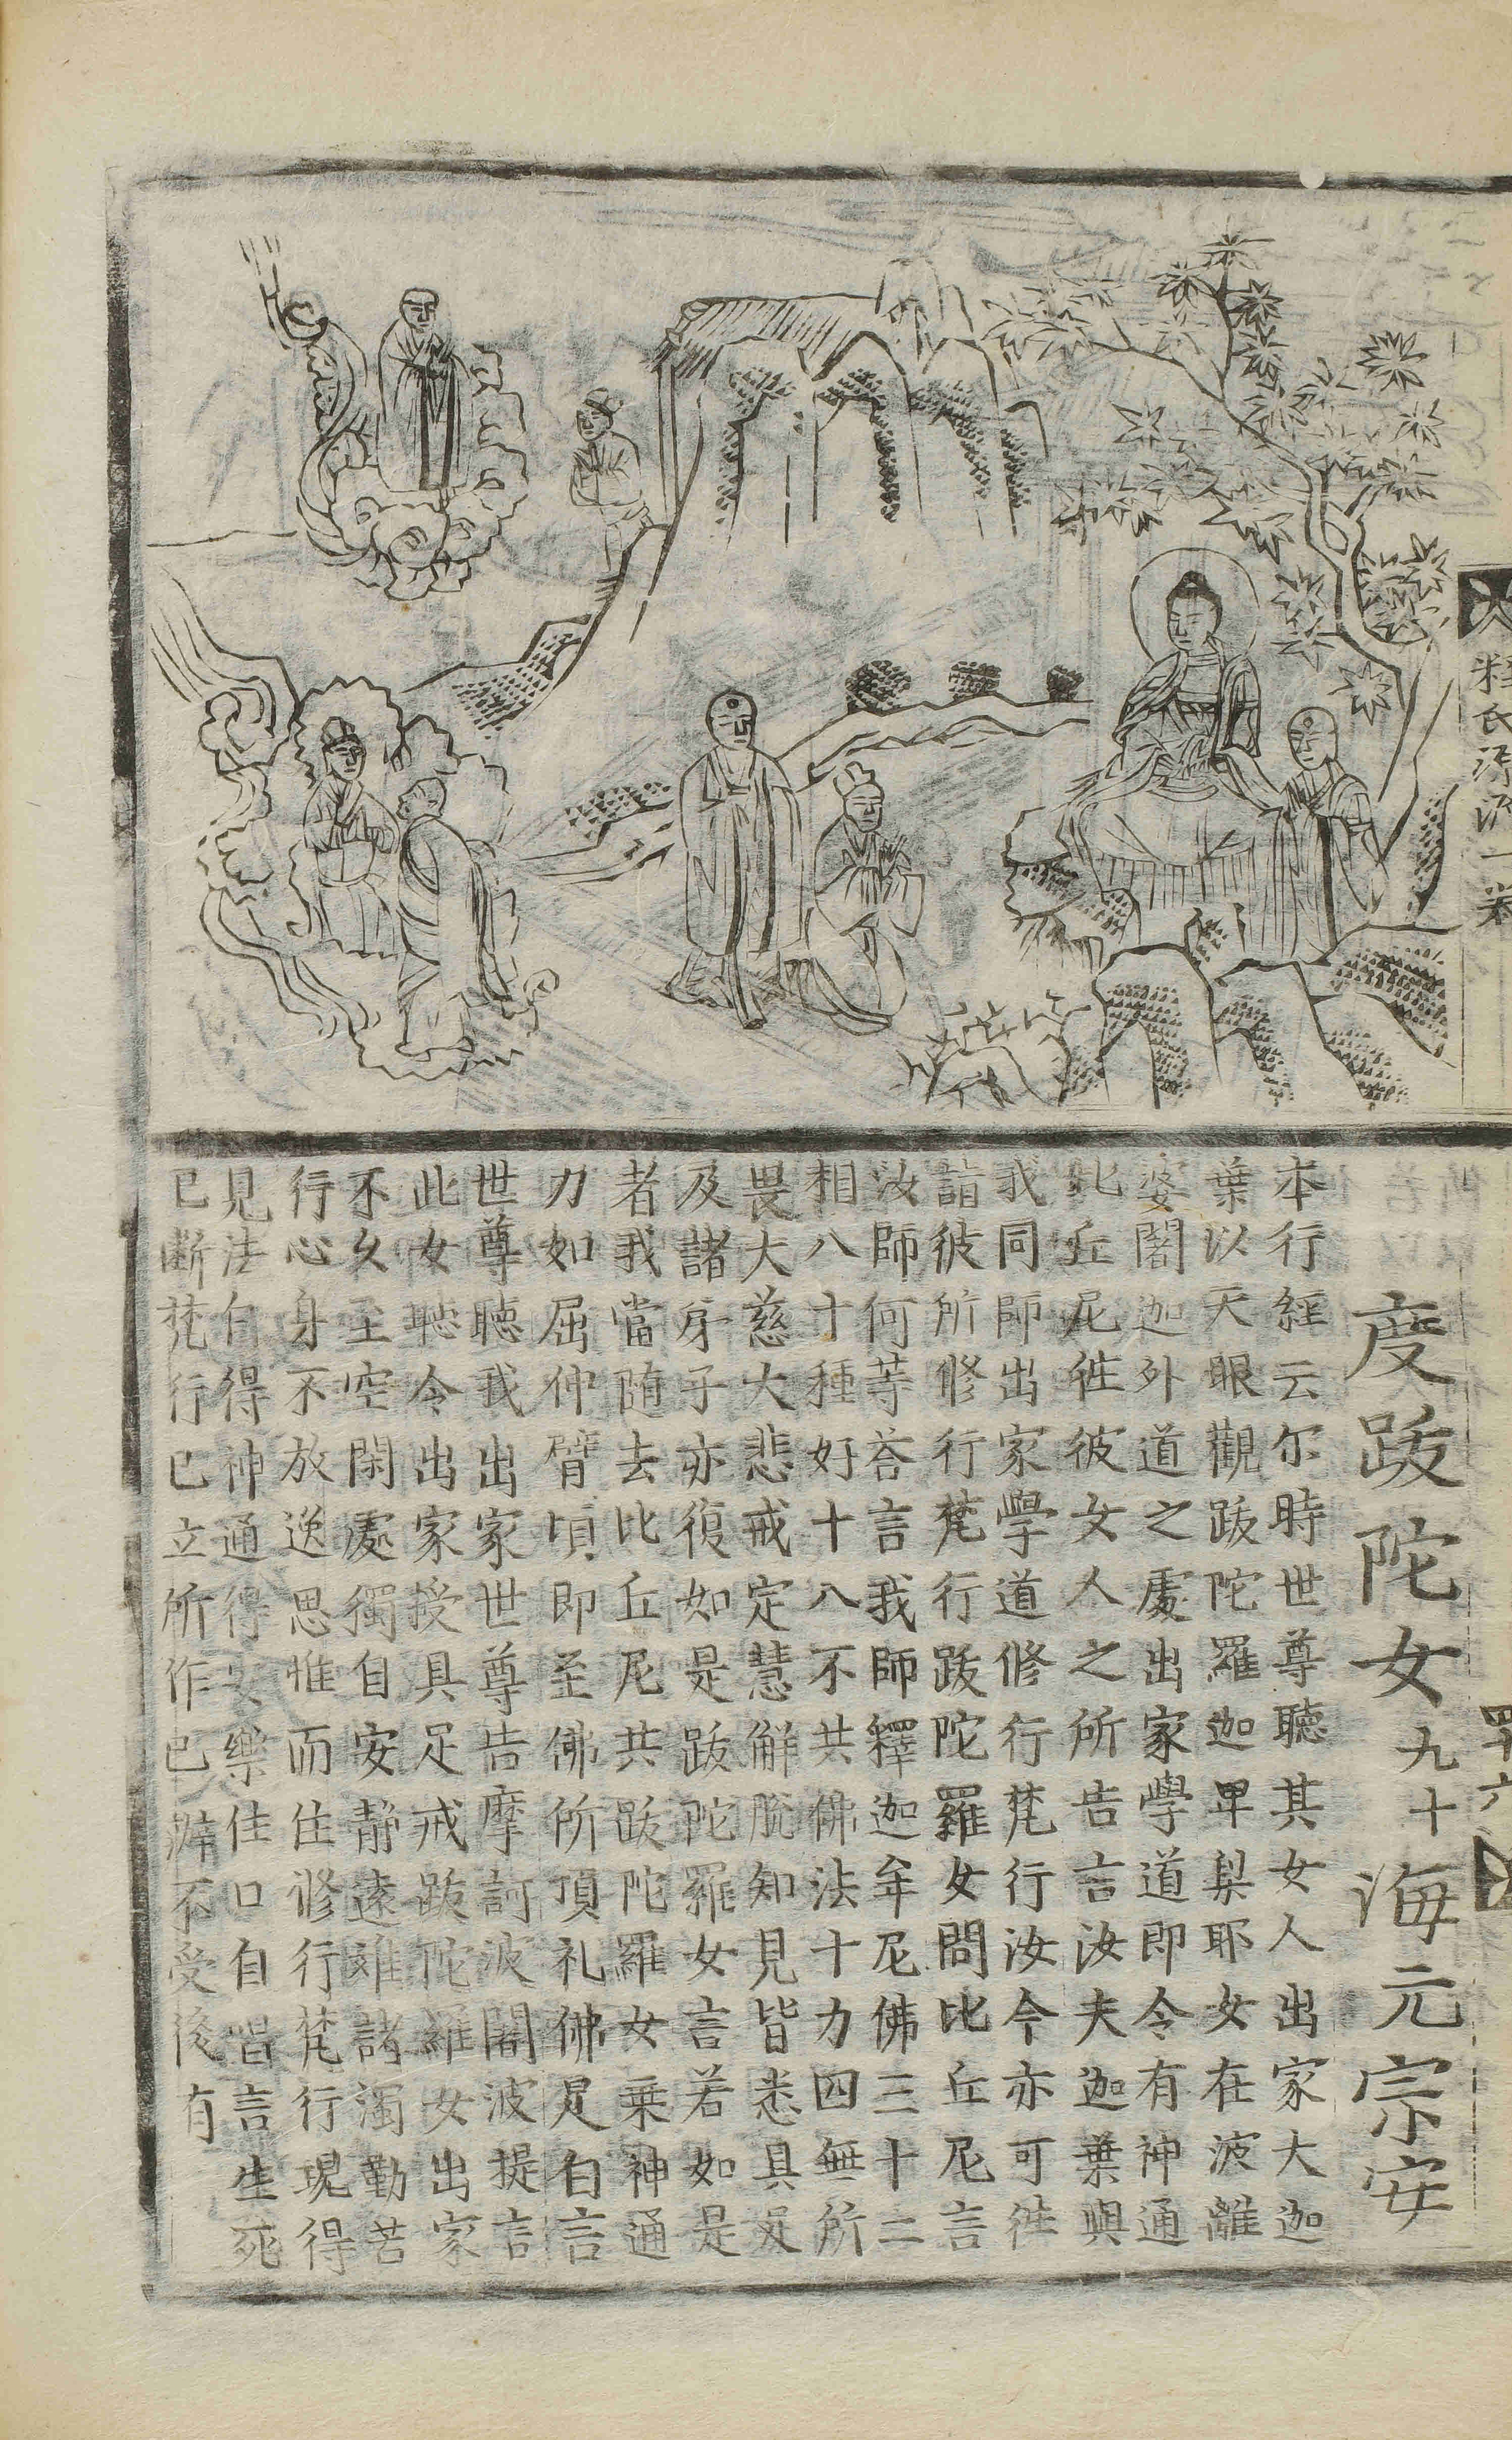 釋氏源流一卷
四十六
度跋陀女九十 海元 宗安
本行經云尔時世尊聽其女人出家大迦
葉以天眼觀跋陀羅迦卑梨耶女在波離
婆闍迦外道之處出家學道即令有神通
比丘尼徃彼女人之所告言汝夫迦葉與
我同師出家學道修行梵行汝今亦可徃
詣彼所修行梵行跋陀羅女問比丘尼言
汝師何等荅言我師釋迦牟尼佛三十二
相八十種好十八不共佛法十力四無所
畏大慈大悲戒定慧解脫知見皆悉具足
及諸弟子亦復如是跋陀羅女言若如是
者我當随去比丘尼共跋陀羅女乗神通
力如屈伸臂頃即至佛所頂礼佛足白言
世尊聽我出家世尊告摩訶波闍波提言
此女聽令出家授具足戒跋陀羅女出家
不久至空閑處獨自安靜遠離諸濁勤苦
行心身不放逸思惟而住修行梵行現得
見法自得神通得安樂住口自唱言生死
已断梵行已立所作已辦不受後有